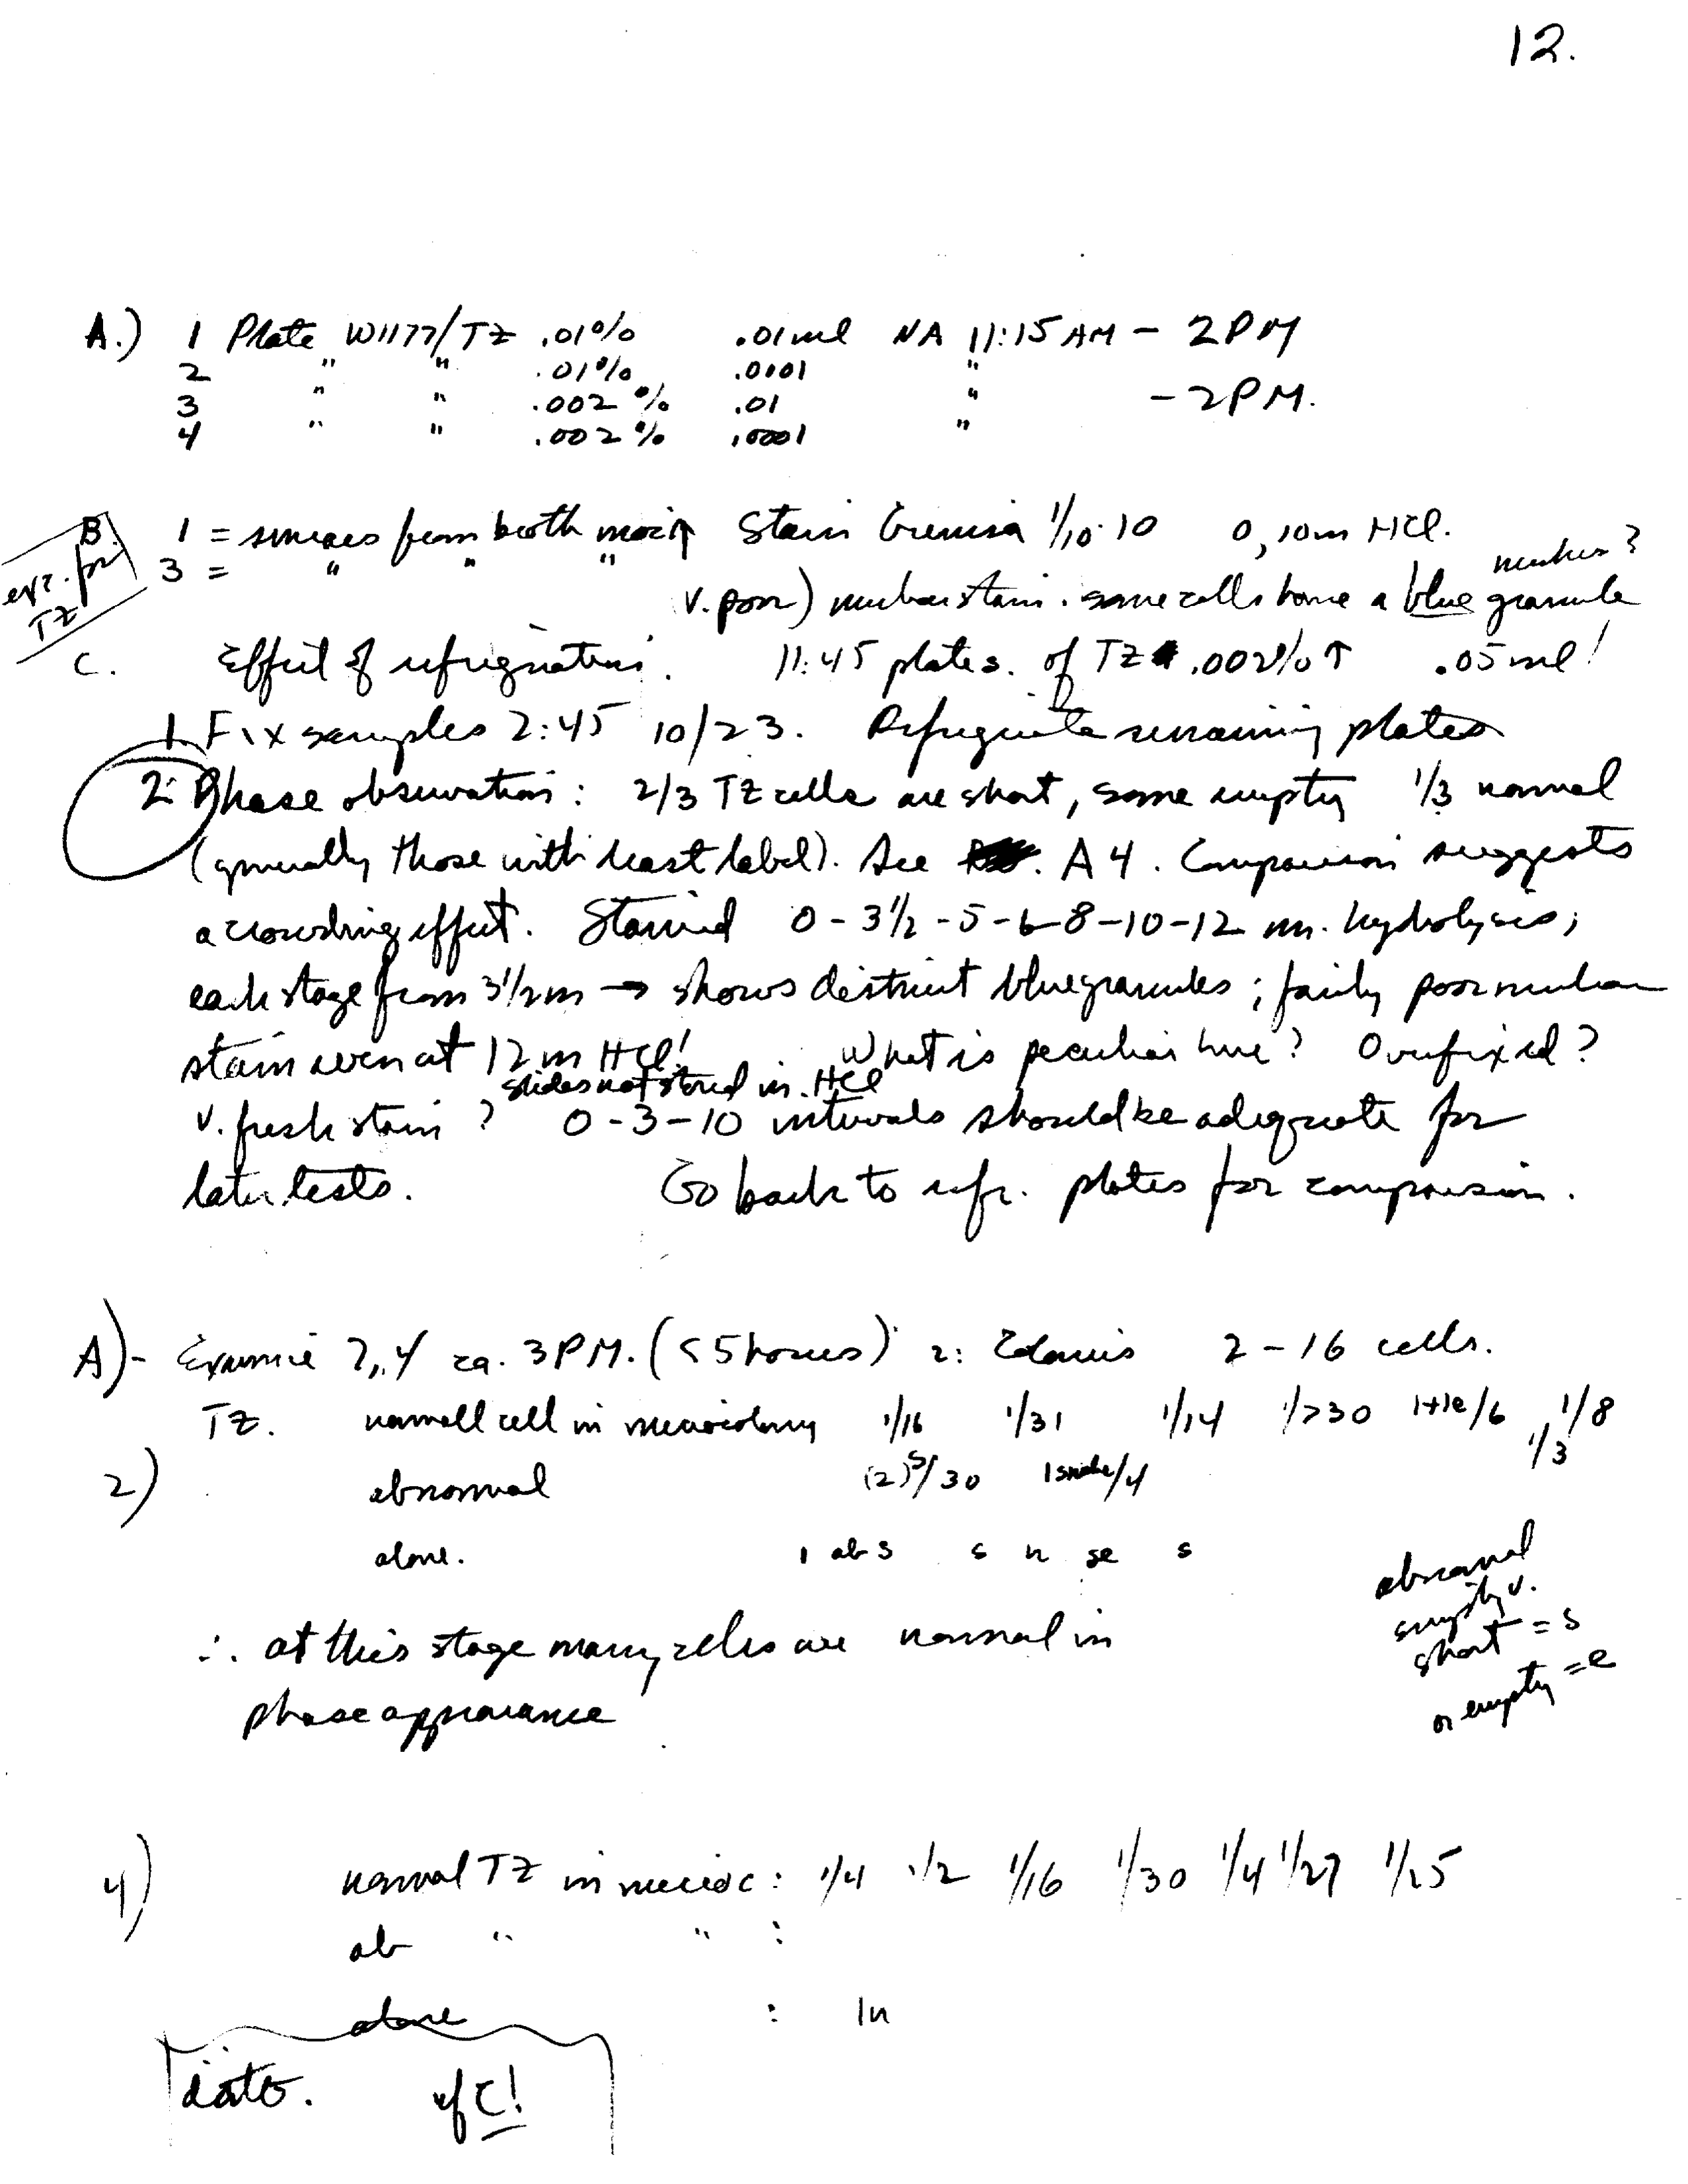 12.
A.) 1 Plate W1177/TZ .01% .01ml NA 11:15 AM - 2PM
2 " " .01% .0001 "
3 " " .002% .01 " - 2PM.
4 " " .002% .0001 "
B. 1 = smears from broth Stain Giemsa 1/10 · 10 0, 10m HCl.
3 = " " "
expt. for TZ
v. poor) nuclear stain. some cells have a blue granule
C. Effect of refrigeration. 11:45 plates. of TZ .002% ↑ .05 ml!
1. Fix samples 2:45 10/23. Refrigerate remaining plates
2. Phase observation: 2/3 TZ cells are short, some empty 1/3 normal
(generally those with least label). See A4. Comparison suggests
a crowding effect. Stained 0 - 3½ - 5 - 6 - 8 - 10 - 12 m. hydrolysis;
each stage from 3½m → shows distinct blue granules; fairly poor nuclear
stain even at 12 m HCl! What is peculiar here? Overfixed?
slides not stored in HCl
v. fresh stain? 0 - 3 - 10 intervals should be adequate for
later tests. Go back to refr. plates for comparison.
A) - Examine 2, 4 ca. 3PM. (< 5 hours) 2: 2 - 16 cells.
TZ. normal cell in microcolony 1/16 1/31 1/14 1/>30 1+1e/6 1/8
1/3
2) abnormal (2)s/30 1 snake/4
alone. 1 ab s s n se s
abnormal
empty v.
short = s
or empty = e
∴ at this stage many cells are normal in
phase appearance
4) normal TZ in microc: 1/4 1/2 1/16 1/30 1/4 1/27 1/25
ab " " :
alone : 1n
ditto. of C!